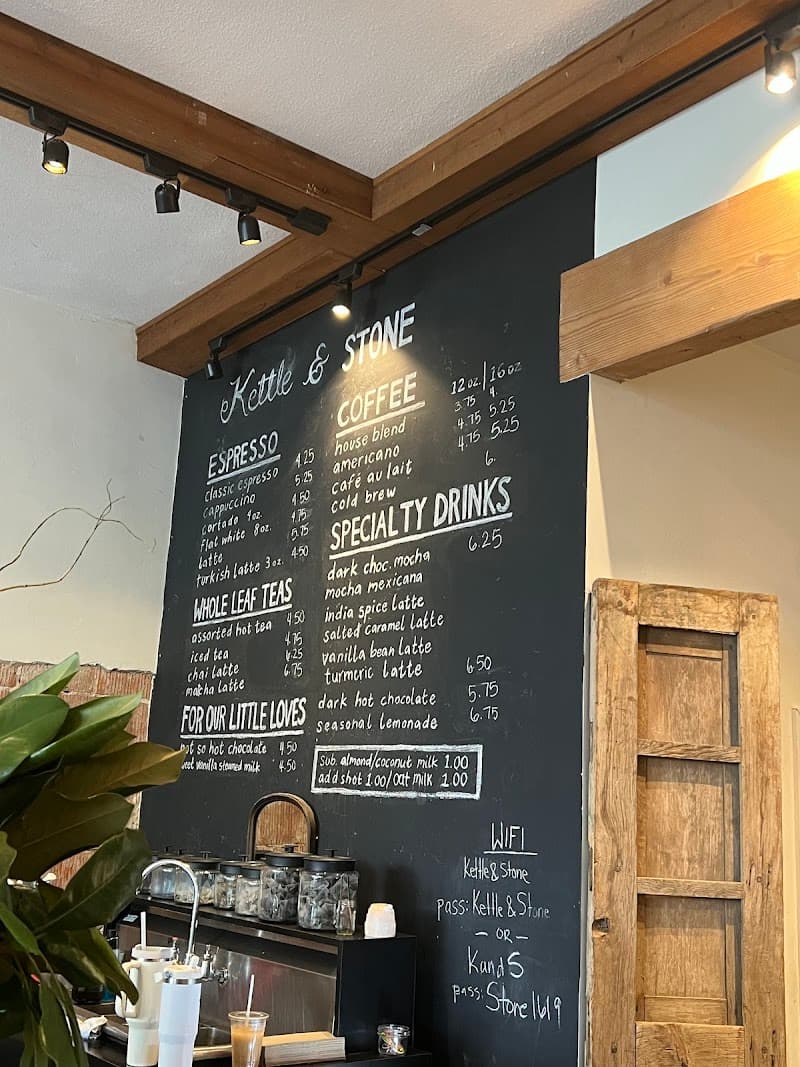 Kettle & STONE
ESPRESSO
classic espresso 4.25
cappuccino 5.25
cortado 4oz. 4.50
flat white 8oz. 4.75
latte 5.75
turkish latte 3oz. 4.50
WHOLE LEAF TEAS
assorted hot tea 4.50
iced tea 4.75
chai latte 6.25
matcha latte 6.75
FOR OUR LITTLE LOVES
not so hot chocolate 4.50
sweet vanilla steamed milk 4.50
COFFEE 12oz./16oz
house blend 3.75 4.
americano 4.75 5.25
café au lait 4.75 5.25
cold brew 6.
SPECIALTY DRINKS
dark choc. mocha 6.25
mocha mexicana
india spice latte
salted caramel latte
vanilla bean latte
turmeric latte 6.50
dark hot chocolate 5.75
seasonal lemonade 6.75
Sub. almond/coconut milk 1.00
add shot 1.00/oat milk 1.00
WIFI
Kettle&Stone
pass: Kettle&Stone
— OR —
KandS
pass: Stone1619